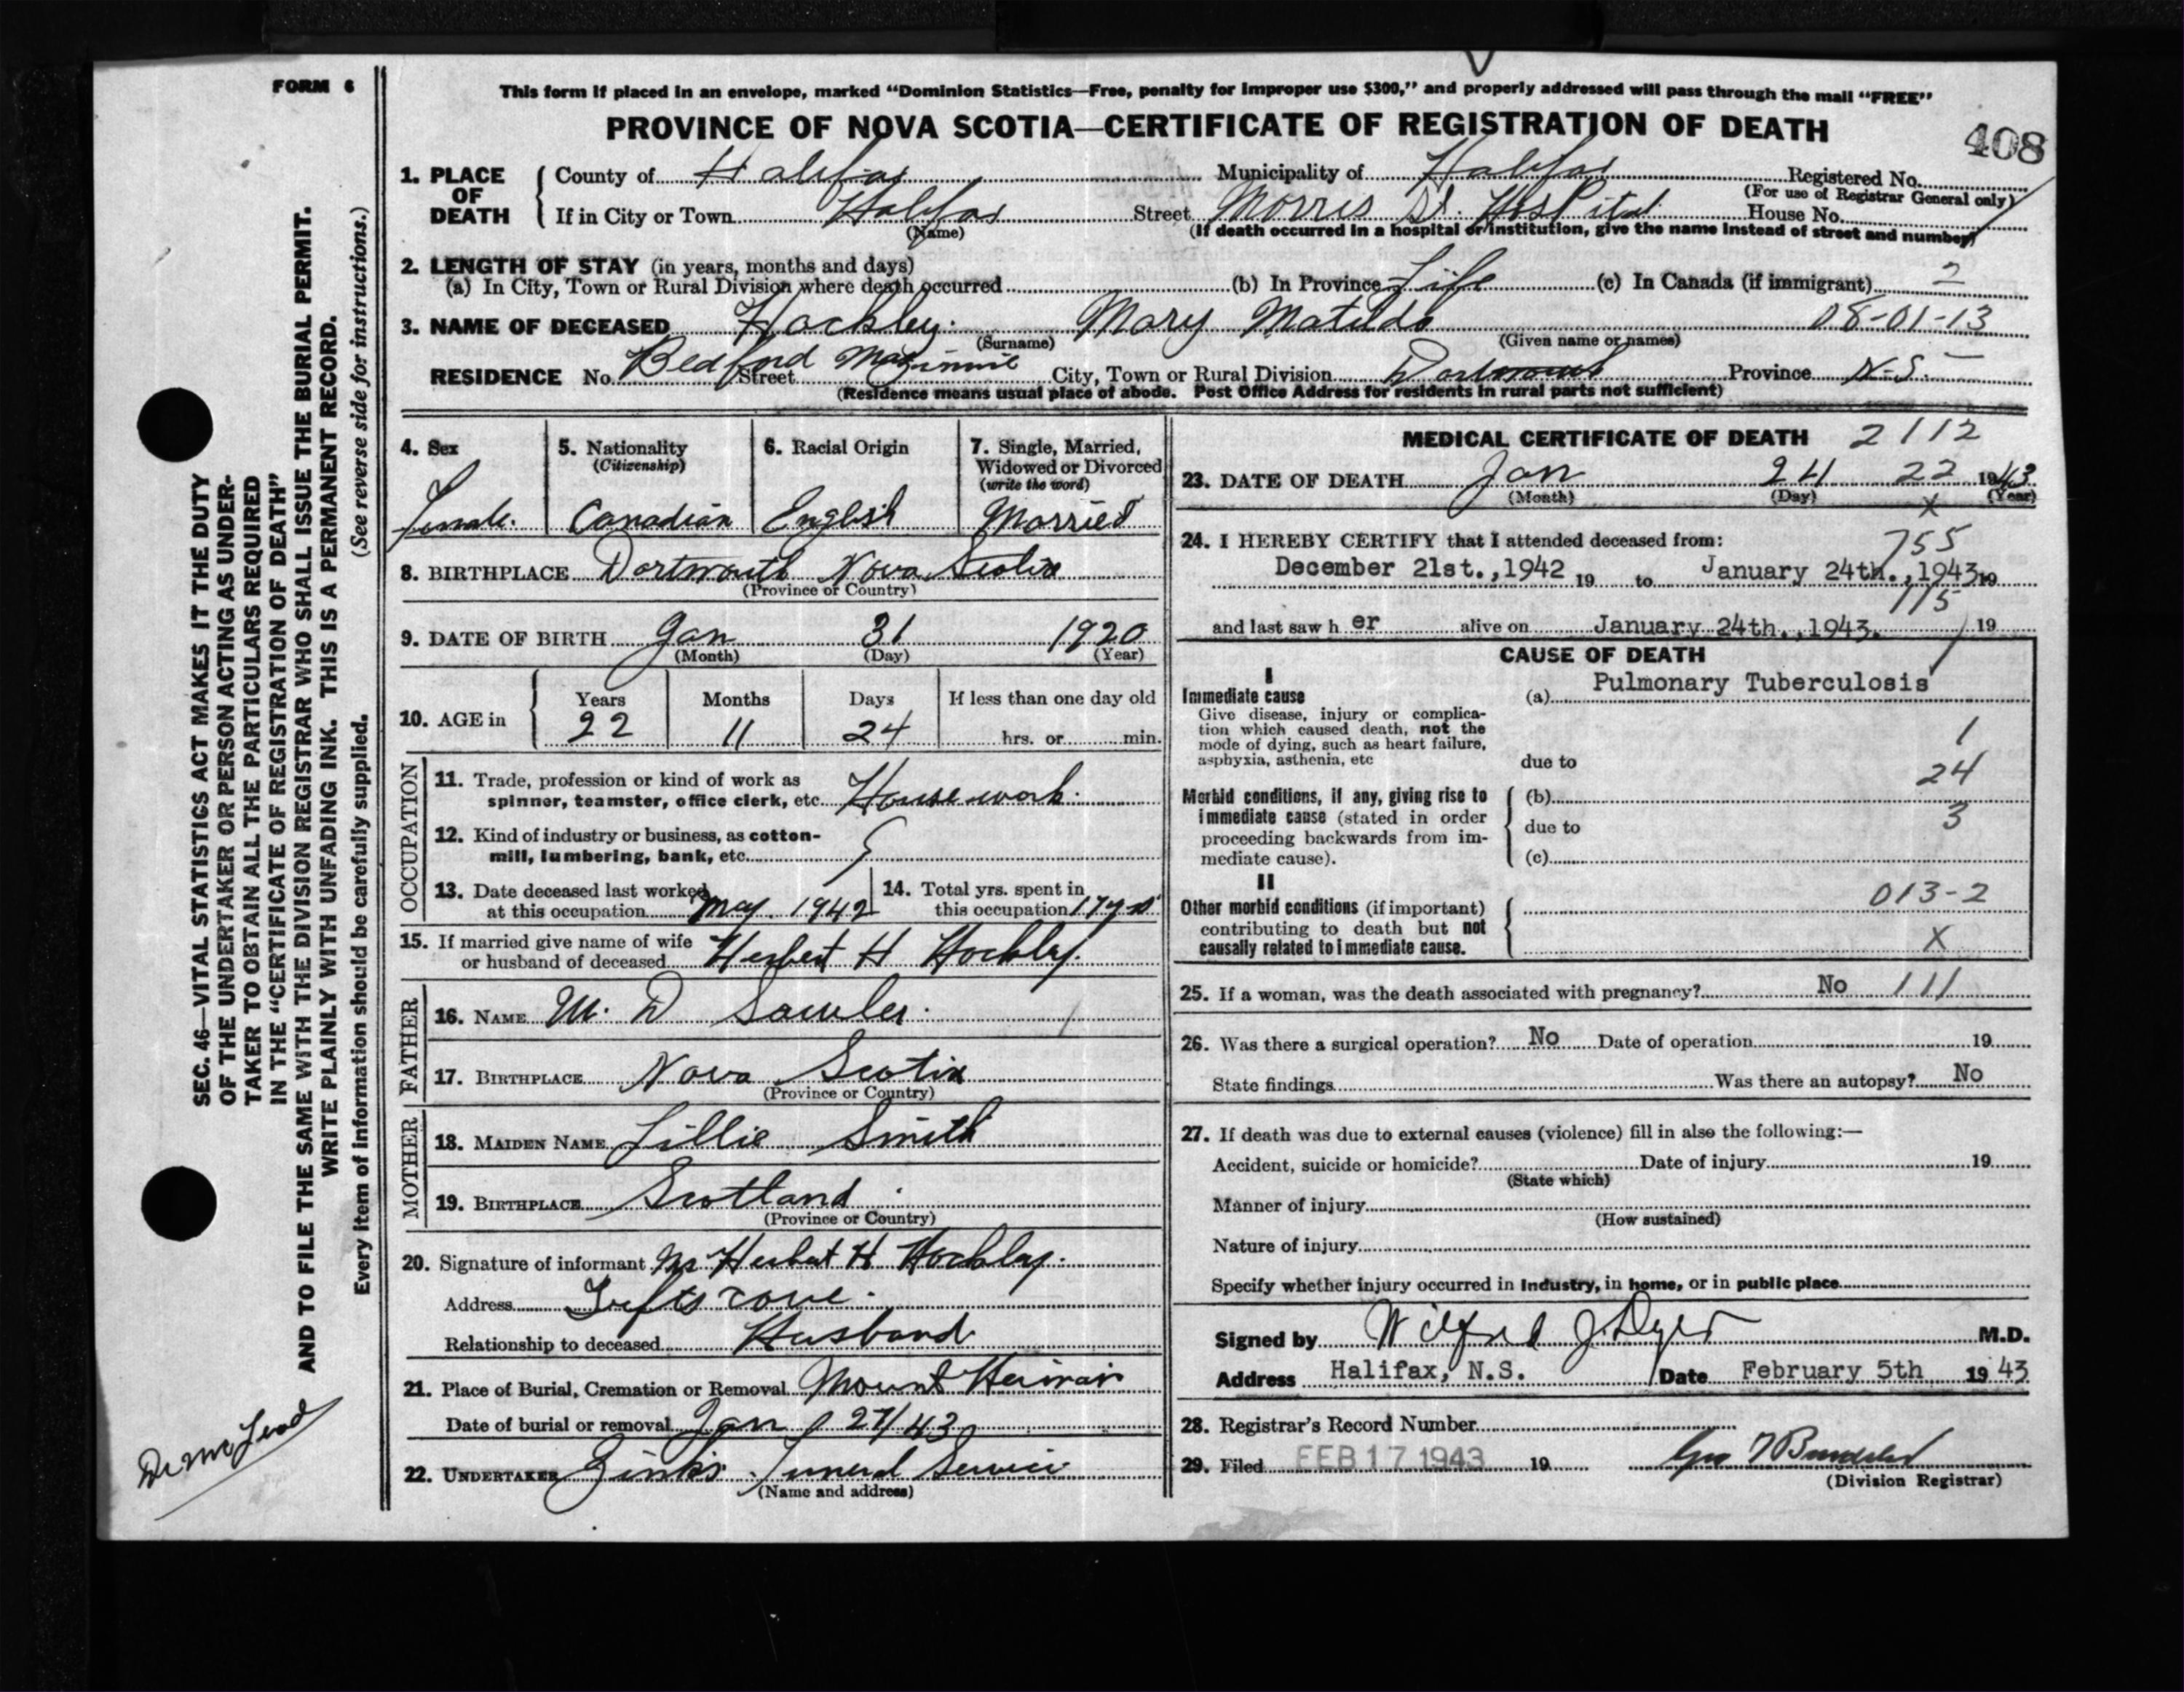 FORM 6
This form if placed in an envelope, marked “Dominion Statistics—Free, penalty for improper use $300,” and properly addressed will pass through the mail “FREE”
PROVINCE OF NOVA SCOTIA—CERTIFICATE OF REGISTRATION OF DEATH
408
1. PLACE OF DEATH
County of Halifax Municipality of Halifax Registered No.
(For use of Registrar General only)
If in City or Town Halifax Street Morris St. Hospital House No.
(Name) (If death occurred in a hospital or institution, give the name instead of street and number)
2. LENGTH OF STAY (in years, months and days)
(a) In City, Town or Rural Division where death occurred (b) In Province Life (c) In Canada (if immigrant) 2
3. NAME OF DECEASED Hockley. Mary Matilda 08-01-13
(Surname) (Given name or names)
RESIDENCE No. Bedford Street City, Town or Rural Division Dartmouth Province N-S-
(Residence means usual place of abode. Post Office Address for residents in rural parts not sufficient)
4. Sex 5. Nationality 6. Racial Origin 7. Single, Married,
(Citizenship) Widowed or Divorced
(write the word)
Female. Canadian English Married
8. BIRTHPLACE Dartmouth Nova Scotia
(Province or Country)
9. DATE OF BIRTH Jan 31 1920
(Month) (Day) (Year)
10. AGE in Years Months Days If less than one day old
22 11 24 hrs. or min.
OCCUPATION
11. Trade, profession or kind of work as
spinner, teamster, office clerk, etc. Housework.
12. Kind of industry or business, as cotton-
mill, lumbering, bank, etc.
13. Date deceased last worked
at this occupation May. 1942
14. Total yrs. spent in
this occupation
15. If married give name of wife
or husband of deceased Herbert H Hockley.
FATHER
16. NAME M. D Sawler.
17. BIRTHPLACE Nova Scotia
(Province or Country)
MOTHER
18. MAIDEN NAME Lillie Smith
19. BIRTHPLACE Scotland
(Province or Country)
20. Signature of informant Mr Herbert H Hockley.
Address Tufts cove.
Relationship to deceased Husband
21. Place of Burial, Cremation or Removal Mount
Date of burial or removal Jan 27/43
22. UNDERTAKER Zinks Funeral Service
(Name and address)
MEDICAL CERTIFICATE OF DEATH 2112
23. DATE OF DEATH Jan 24 22 1943
(Month) (Day) X (Year)
24. I HEREBY CERTIFY that I attended deceased from: 755
December 21st.,1942 19 to January 24th.,1943 19
115
and last saw h er alive on January 24th.,1943. 19
CAUSE OF DEATH
I
Immediate cause (a) Pulmonary Tuberculosis
Give disease, injury or complica-
tion which caused death, not the
mode of dying, such as heart failure,
asphyxia, asthenia, etc due to
1
24
Morbid conditions, if any, giving rise to (b)
immediate cause (stated in order 3
proceeding backwards from im- due to
mediate cause). (c)
II
013-2
Other morbid conditions (if important)
contributing to death but not
causally related to immediate cause. X
25. If a woman, was the death associated with pregnancy? No 111
26. Was there a surgical operation? No Date of operation 19
State findings Was there an autopsy? No
27. If death was due to external causes (violence) fill in also the following:—
Accident, suicide or homicide? Date of injury 19
(State which)
Manner of injury
(How sustained)
Nature of injury
Specify whether injury occurred in industry, in home, or in public place
Signed by Wilfred J. Dyer M.D.
Address Halifax, N.S. Date February 5th 1943
28. Registrar's Record Number
29. Filed FEB 17 1943 19
(Division Registrar)
SEC. 46—VITAL STATISTICS ACT MAKES IT THE DUTY
OF THE UNDERTAKER OR PERSON ACTING AS UNDER-
TAKER TO OBTAIN ALL THE PARTICULARS REQUIRED
IN THE “CERTIFICATE OF REGISTRATION OF DEATH”
AND TO FILE THE SAME WITH THE DIVISION REGISTRAR WHO SHALL ISSUE THE BURIAL PERMIT.
WRITE PLAINLY WITH UNFADING INK. THIS IS A PERMANENT RECORD.
Every item of information should be carefully supplied. (See reverse side for instructions.)
Dr McLeod